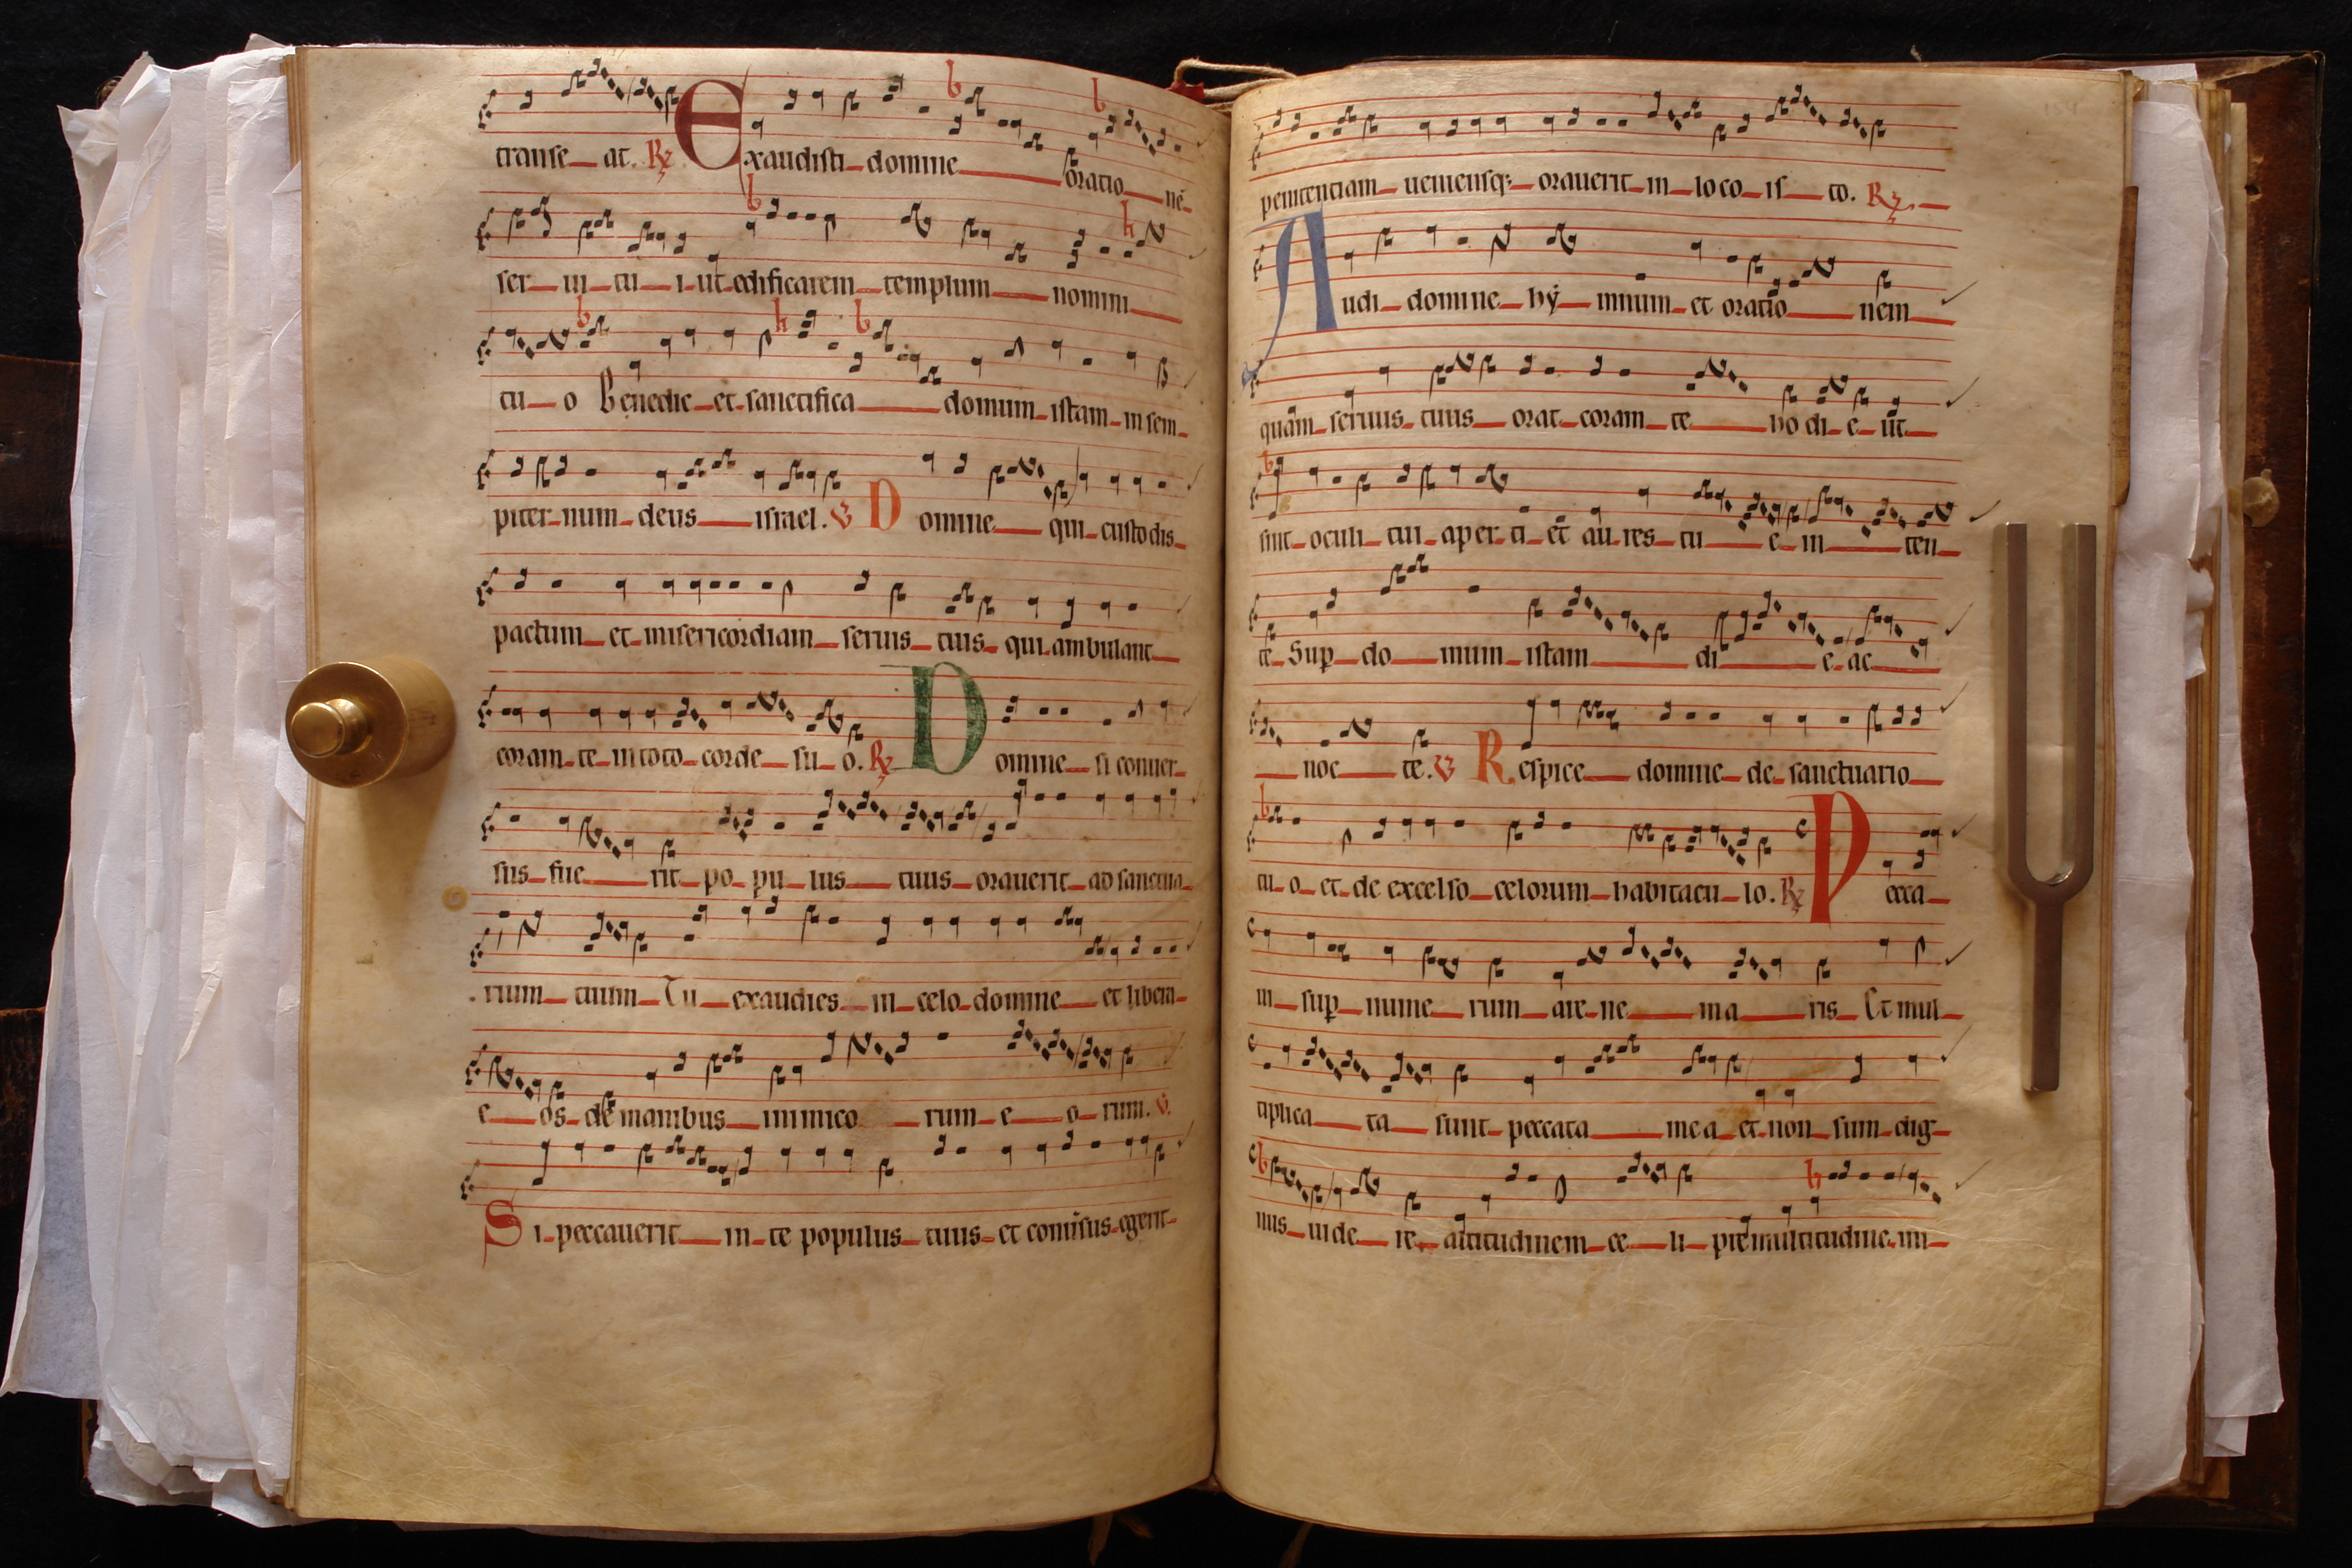 transse at. R Exaudisti domine oratio nē
ser ui tu i ut edificarem templum nomini
tu o Benedic et sanctifica domum istam in sem
piter num deus israel. V Domine qui custodis
pactum et misericordiam seruis tuis qui ambulant
coram te in toto corde su o. R Domine si conuer
sus fue rit po pu lus tuus orauerit ad sanctua
rium tuum Tu exaudies in celo domine et libera
e os de manibus inimico rum e o rum. V
Si peccauerit in te populus tuus et conuersus egerit
penitentiam ueniensq; orauerit in loco is to. R
Audi domine hy mnum et oratio nem
quam seruus tuus orat coram te ho di e ut
sint oculi tui aper ti et au res tu e in ten
te Sup do mum istam di e ac
noc te. V Respice domine de sanctuario
tu o et de excelso celorum habitacu lo. R Pecca
ui sup nume rum are ne ma ris Et mul
tiplica ta sunt peccata mea et non sum dig
nus uide re altitudinem ce li pre multitudine ini